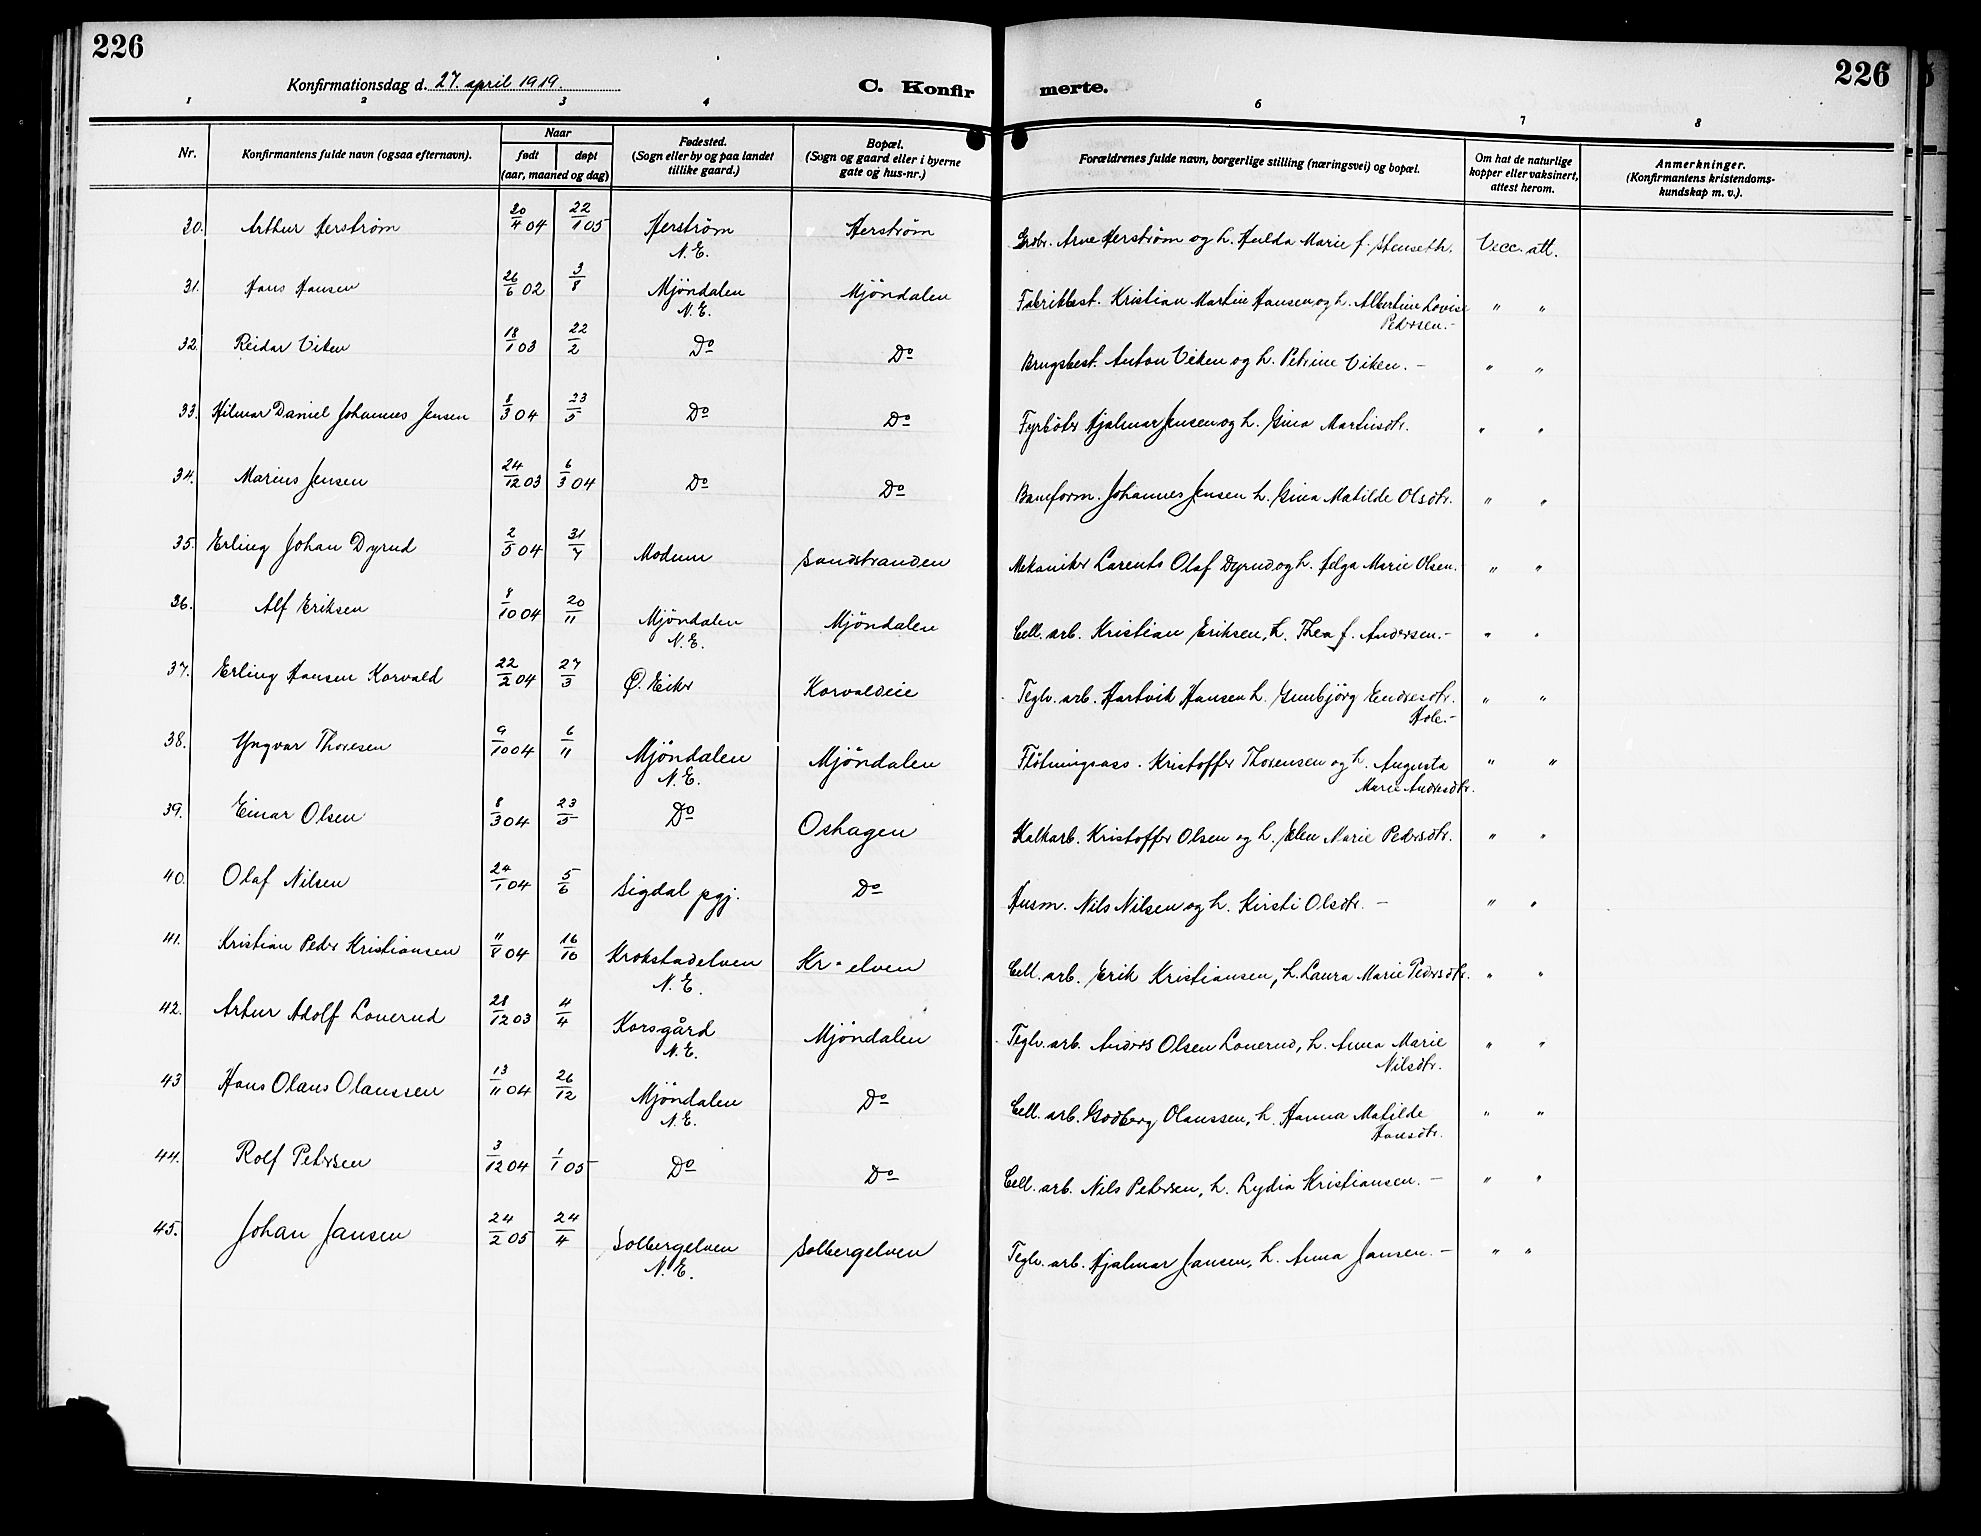 226
Konfirmationsdag d. 27. april 1919.
C. Konfir
merte.
226
1 2 3 4 5 6 7 8
Nr. Konfirmantens fulde navn (ogsaa efternavn).
Naar
født døpt
(aar, maaned og dag)
Fødested.
(Sogn eller by og paa landet
tillike gaard.)
Bopæl.
(Sogn og gaard eller i byerne
gate og hus-nr.)
Forældrenes fulde navn, borgerlige stilling (næringsvei) og bopæl.
Om hat de naturlige
kopper eller vaksinert,
attest herom.
Anmerkninger.
(Konfirmantens kristendoms-
kundskap m. v.).
30. Arthur Herstrøm 20/4 04 22/1 05 Herstrøm Herstrøm Grdbr. Arne Herstrøm og h. Hulda Marie f. Stenseth. Vacc. att.
N. E.
31. Hans Hansen 26/6 02 3/8 Mjöndalen Mjöndalen Fabrikbest. Kristian Martin Hansen og h. Albertine Lovise " "
N. E. Pedersen.-
32. Reidar Viken 18/1 03 22/2 Do Do Brugsbest. Anton Viken og h. Petrine Viken. - " "
33. Hilmar Daniel Johannes Jensen 8/3 04 23/5 Do Do Fyrböter Hjalmar Jensen og h. Gina Martinsdtr. " "
34. Marius Jensen 24/12 03 6/3 04 Do Do Baneform. Johannes Jensen h. Gina Matilde Olsdtr. " "
35. Erling Johan Dyrud 2/5 04 31/7 Modum Sandstranden Mekaniker Larents Olaf Dyrud og h. Helga Marie Olsen. " "
36. Alf Eriksen 8/10 04 20/11 Mjöndalen Mjöndalen Cell. arb. Kristian Eriksen, h. Thea f. Andersen.- " "
N. E.
37. Erling Hansen Korvald 22/2 04 27/3 Ø. Eiker Korvaldeie Teglv. arb. Hartvik Hansen h. Gunbjörg Endresdtr. " "
Hole.-
38. Yngvar Thoresen 9/10 04 6/11 Mjöndalen Mjöndalen Flötningsass. Kristoffer Thorensen og h. Augusta " "
N. E. Marie Andresdtr.
39. Einar Olsen 8/3 04 23/5 Do Oshagen Kalkarb. Kristoffer Olsen og h. Elen Marie Pedersdtr. " "
40. Olaf Nilsen 24/1 04 5/6 Sigdal pgj. Do Husm. Nils Nilsen og h. Kirsti Olsdtr. - " "
41. Kristian Peder Kristiansen 11/8 04 16/10 Krokstadelven Kr-elven Cell. arb. Erik Kristiansen, h. Laura Marie Pedersdtr. " "
N. E.
42. Artur Adolf Lonerud 28/12 03 4/4 Korsgård Mjöndalen Teglv. arb. Anders Olsen Lonerud, h. Anna Marie " "
N. E. Nilsdtr.
43 Hans Olaus Olaussen 13/11 04 26/12 Mjöndalen Do Cell. arb. Godberg Olaussen, h. Hanna Matilde " "
N. E. Hansdtr.
44. Rolf Petersen 3/12 04 1/1 05 Do Do Cell. arb. Nils Petersen, h. Lydia Kristiansen. - " "
45. Johan Jansen 24/2 05 24/4 Solbergelven Solbergelven Teglv. arb. Hjalmar Jansen, h. Anna Jansen. - " "
N. E.